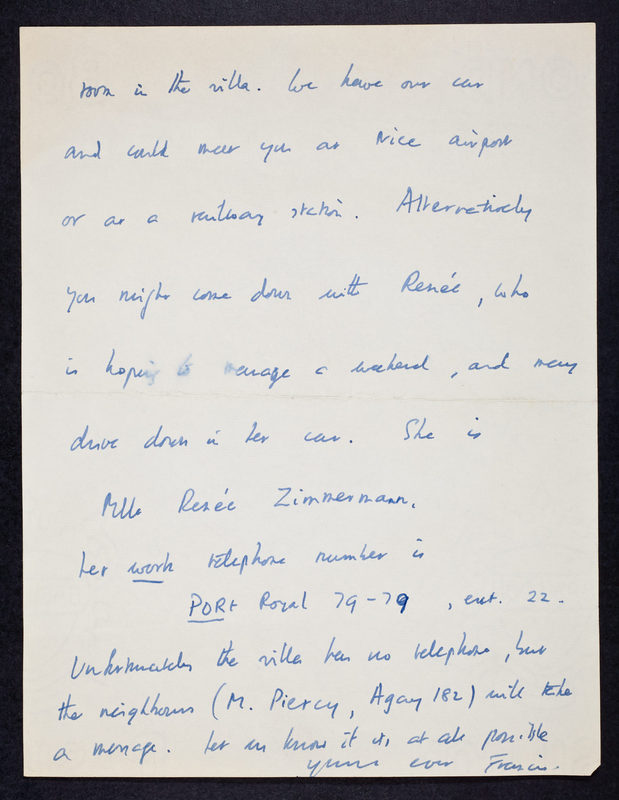 room in the villa. We have our car
and could meet you at Nice airport
or at a railway station. Alternatively
you might come down with Renée, who
is hoping to manage a weekend, and may
drive down in her car. She is
Mlle Renée Zimmermann.
Her work telephone number is
PORt Royal 79-79, ext. 22.
Unfortunately the villa has no telephone, but
the neighbours (M. Piercy, Agay 182) will take
a message. Let us know if it is at all possible
yours ever Francis.